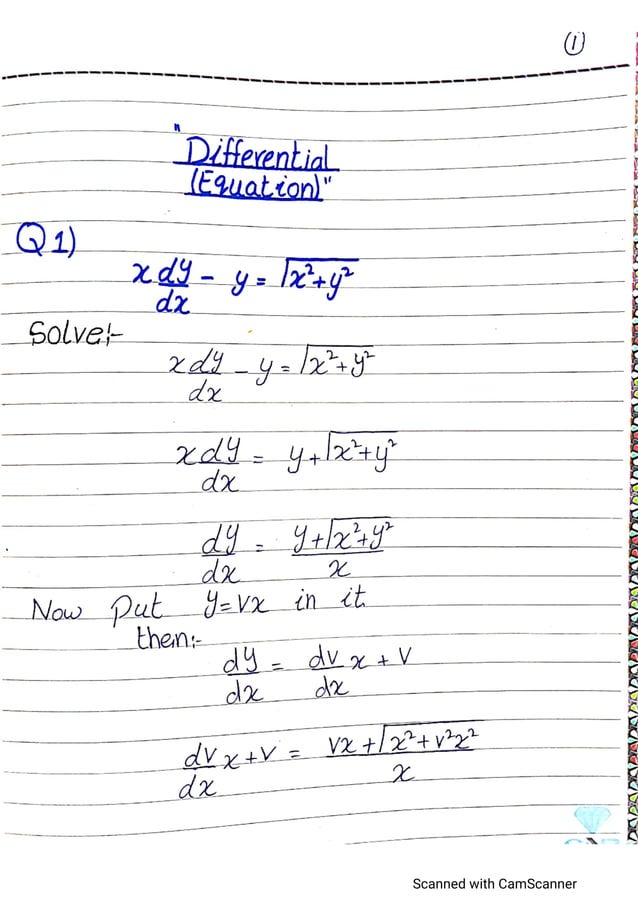 (1)
"Differential
(Equation)"
Q 1)
x dy/dx - y = √x²+y²
Solve:-
x dy/dx - y = √x²+y²
x dy/dx = y+√x²+y²
dy/dx = y+√x²+y²/x
Now Put y=vx in it
then:-
dy/dx = dv/dx x + v
dv/dx x+v = vx+√x²+v²x²/x
Scanned with CamScanner